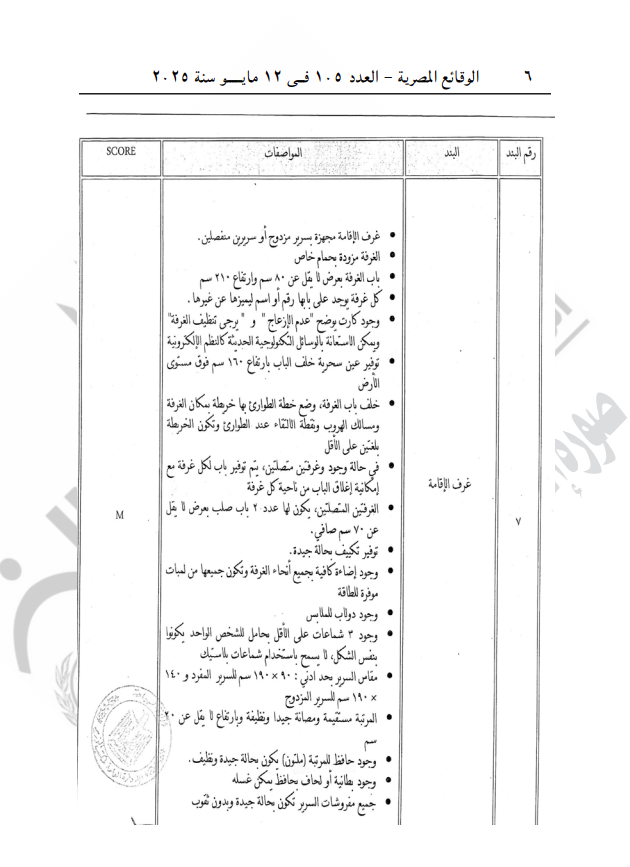 ٦ الوقائع المصرية – العدد ١٠٥ فى ١٢ مايـــو سنة ٢٠٢٥
رقم البند البند المواصفات SCORE
٧ غرف الإقامة M
• غرف الإقامة مجهزة بسرير مزدوج أو سريرين منفصلين.
• الغرفة مزودة بحمام خاص
• باب الغرفة بعرض لا يقل عن ٨٠ سم وارتفاع ٢١٠ سم
• كل غرفة يوجد على بابها رقم أو اسم ليميزها عن غيرها .
• وجود كارت يوضح "عدم الإزعاج" و " يرجى تنظيف الغرفة"
ويمكن الاستعانة بالوسائل التكنولوجية الحديثة كالنظم الإلكترونية
• توفير عين سحرية خلف الباب بارتفاع ١٦٠ سم فوق مستوى
الأرض
• خلف باب الغرفة، وضع خطة الطوارئ بها خريطة بمكان الغرفة
ومسالك الهروب ونقطة الالتقاء عند الطوارئ وتكون الخريطة
بلغتين على الأقل
• في حالة وجود وغرفتين متصلتين، يتم توفير باب لكل غرفة مع
إمكانية إغلاق الباب من ناحية كل غرفة
• الغرفتين المتصلتين، يكون لها عدد ٢ باب صلب بعرض لا يقل
عن ٧٠ سم صافي.
• توفير تكييف بحالة جيدة.
• وجود إضاءة كافية بجميع أنحاء الغرفة وتكون جميعها من لمبات
موفرة للطاقة
• وجود دولاب للملابس
• وجود ٣ شماعات على الأقل بحامل للشخص الواحد يكونوا
بنفس الشكل، لا يسمح باستخدام شماعات بلاستيك
• مقاس السرير بحد ادني : ٩٠ × ١٩٠ سم للسرير المفرد و ١٤٠
× ١٩٠ سم للسرير المزدوج
• المرتبة مستقيمة ومصانة جيدا ونظيفة وبارتفاع لا يقل عن ٢٠
سم
• وجود حافظ للمرتبة (ملتون) يكون بحالة جيدة ونظيف.
• وجود بطانية أو لحاف بحافظ يمكن غسله
• جميع مفروشات السرير تكون بحالة جيدة وبدون ثقوب